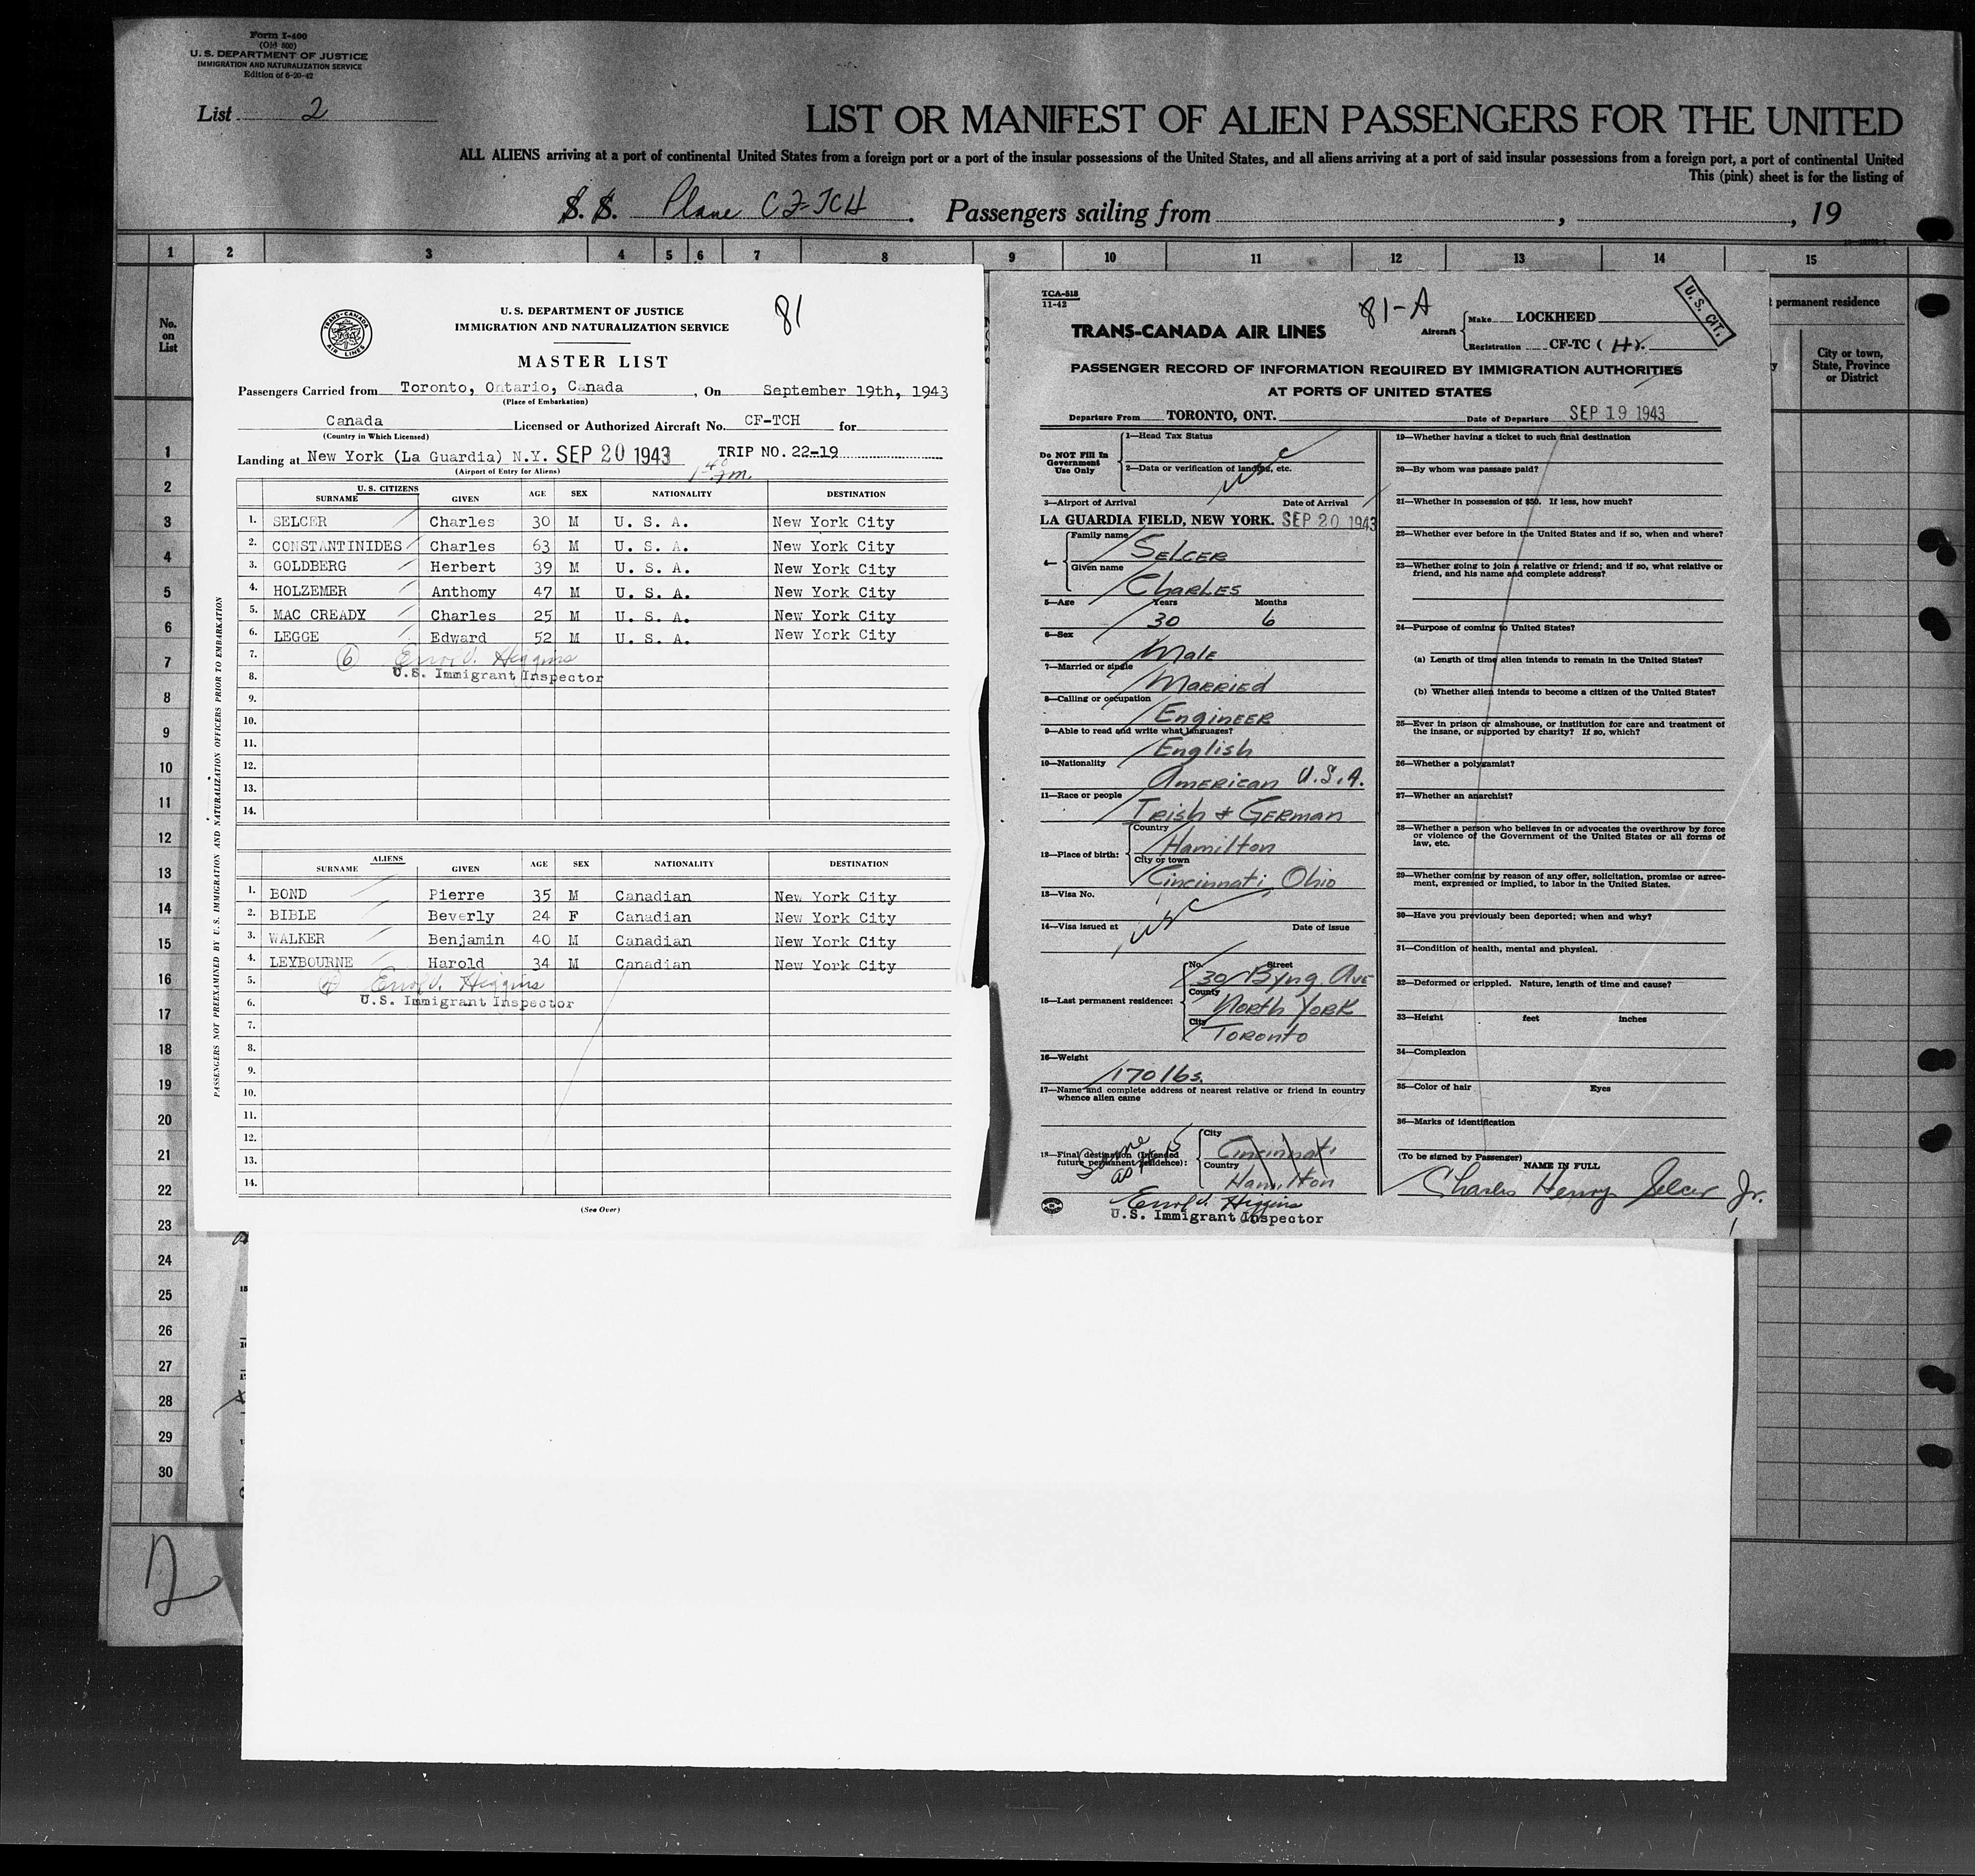 Form I-400
(Old 500)
U. S. DEPARTMENT OF JUSTICE
IMMIGRATION AND NATURALIZATION SERVICE
Edition of 6-20-42
List 2
LIST OR MANIFEST OF ALIEN PASSENGERS FOR THE UNITED
ALL ALIENS arriving at a port of continental United States from a foreign port or a port of the insular possessions of the United States, and all aliens arriving at a port of said insular possessions from a foreign port, a port of continental United
This (pink) sheet is for the listing of
S. S. Plane CF-TCH . Passengers sailing from , , 19
1 2 3 4 5 6 7 8 9 10 11 12 13 14 15
No. on List
permanent residence
City or town, State, Province or District
1
2
3
4
5
6
7
8
9
10
11
12
13
14
15
16
17
18
19
20
21
22
23
24
25
26
27
28
29
30
2
TRANS-CANADA AIR LINES
U.S. DEPARTMENT OF JUSTICE
IMMIGRATION AND NATURALIZATION SERVICE
81
MASTER LIST
Passengers Carried from Toronto, Ontario, Canada , On September 19th, 1943
(Place of Embarkation)
Canada Licensed or Authorized Aircraft No. CF-TCH for
(Country in Which Licensed)
Landing at New York (La Guardia) N.Y. SEP 20 1943 TRIP NO. 22-19
(Airport of Entry for Aliens)
U.S. CITIZENS
SURNAME GIVEN AGE SEX NATIONALITY DESTINATION
1. SELCER Charles 30 M U. S. A. New York City
2. CONSTANTINIDES Charles 63 M U. S. A. New York City
3. GOLDBERG Herbert 39 M U. S. A. New York City
4. HOLZEMER Anthomy 47 M U. S. A. New York City
5. MAC CREADY Charles 25 M U. S. A. New York City
6. LEGGE Edward 52 M U. S. A. New York City
7. 6 Errol J. Higgins
8. U.S. Immigrant Inspector
9.
10.
11.
12.
13.
14.
ALIENS
SURNAME GIVEN AGE SEX NATIONALITY DESTINATION
1. BOND Pierre 35 M Canadian New York City
2. BIBLE Beverly 24 F Canadian New York City
3. WALKER Benjamin 40 M Canadian New York City
4. LEYBOURNE Harold 34 M Canadian New York City
5. 4 Errol J. Higgins
6. U.S. Immigrant Inspector
7.
8.
9.
10.
11.
12.
13.
14.
(See Over)
PASSENGERS NOT PREEXAMINED BY U. S. IMMIGRATION AND NATURALIZATION OFFICERS PRIOR TO EMBARKATION
TCA-518
11-42
81-A
U. S. CIT.
TRANS-CANADA AIR LINES
Aircraft Make LOCKHEED
Registration CF-TC ( H ).
PASSENGER RECORD OF INFORMATION REQUIRED BY IMMIGRATION AUTHORITIES
AT PORTS OF UNITED STATES
Departure From TORONTO, ONT. Date of Departure SEP 19 1943
Do NOT Fill In Government Use Only
1—Head Tax Status
2—Data or verification of landing, etc.
3—Airport of Arrival Date of Arrival
LA GUARDIA FIELD, NEW YORK. SEP 20 1943
4— Family name SELCER
Given name CHARLES
5—Age Years 30 Months 6
6—Sex Male
7—Married or single MARRIED
8—Calling or occupation EnginEER
9—Able to read and write what languages? English
10—Nationality AMERICAN U.S.A.
11—Race or people IRish & GERMAN
12—Place of birth: Country Hamilton
City or town Cincinnati Ohio
13—Visa No.
14—Visa issued at Date of issue
15—Last permanent residence: No. Street 30 Byng. Ave
County North York
City Toronto
16—Weight 170 lbs.
17—Name and complete address of nearest relative or friend in country whence alien came
18—Final destination (Intended future permanent residence): City Cincinnati
Country Hamilton
Same as # 15
Errol J. Higgins
U.S. Immigrant Inspector
19—Whether having a ticket to such final destination
20—By whom was passage paid?
21—Whether in possession of $50. If less, how much?
22—Whether ever before in the United States and if so, when and where?
23—Whether going to join a relative or friend; and if so, what relative or friend, and his name and complete address?
24—Purpose of coming to United States?
(a) Length of time alien intends to remain in the United States?
(b) Whether alien intends to become a citizen of the United States?
25—Ever in prison or almshouse, or institution for care and treatment of the insane, or supported by charity? If so, which?
26—Whether a polygamist?
27—Whether an anarchist?
28—Whether a person who believes in or advocates the overthrow by force or violence of the Government of the United States or all forms of law, etc.
29—Whether coming by reason of any offer, solicitation, promise or agreement, expressed or implied, to labor in the United States.
30—Have you previously been deported; when and why?
31—Condition of health, mental and physical.
32—Deformed or crippled. Nature, length of time and cause?
33—Height feet inches
34—Complexion
35—Color of hair Eyes
36—Marks of identification
(To be signed by Passenger)
NAME IN FULL
Charles Henry Selcer Jr.